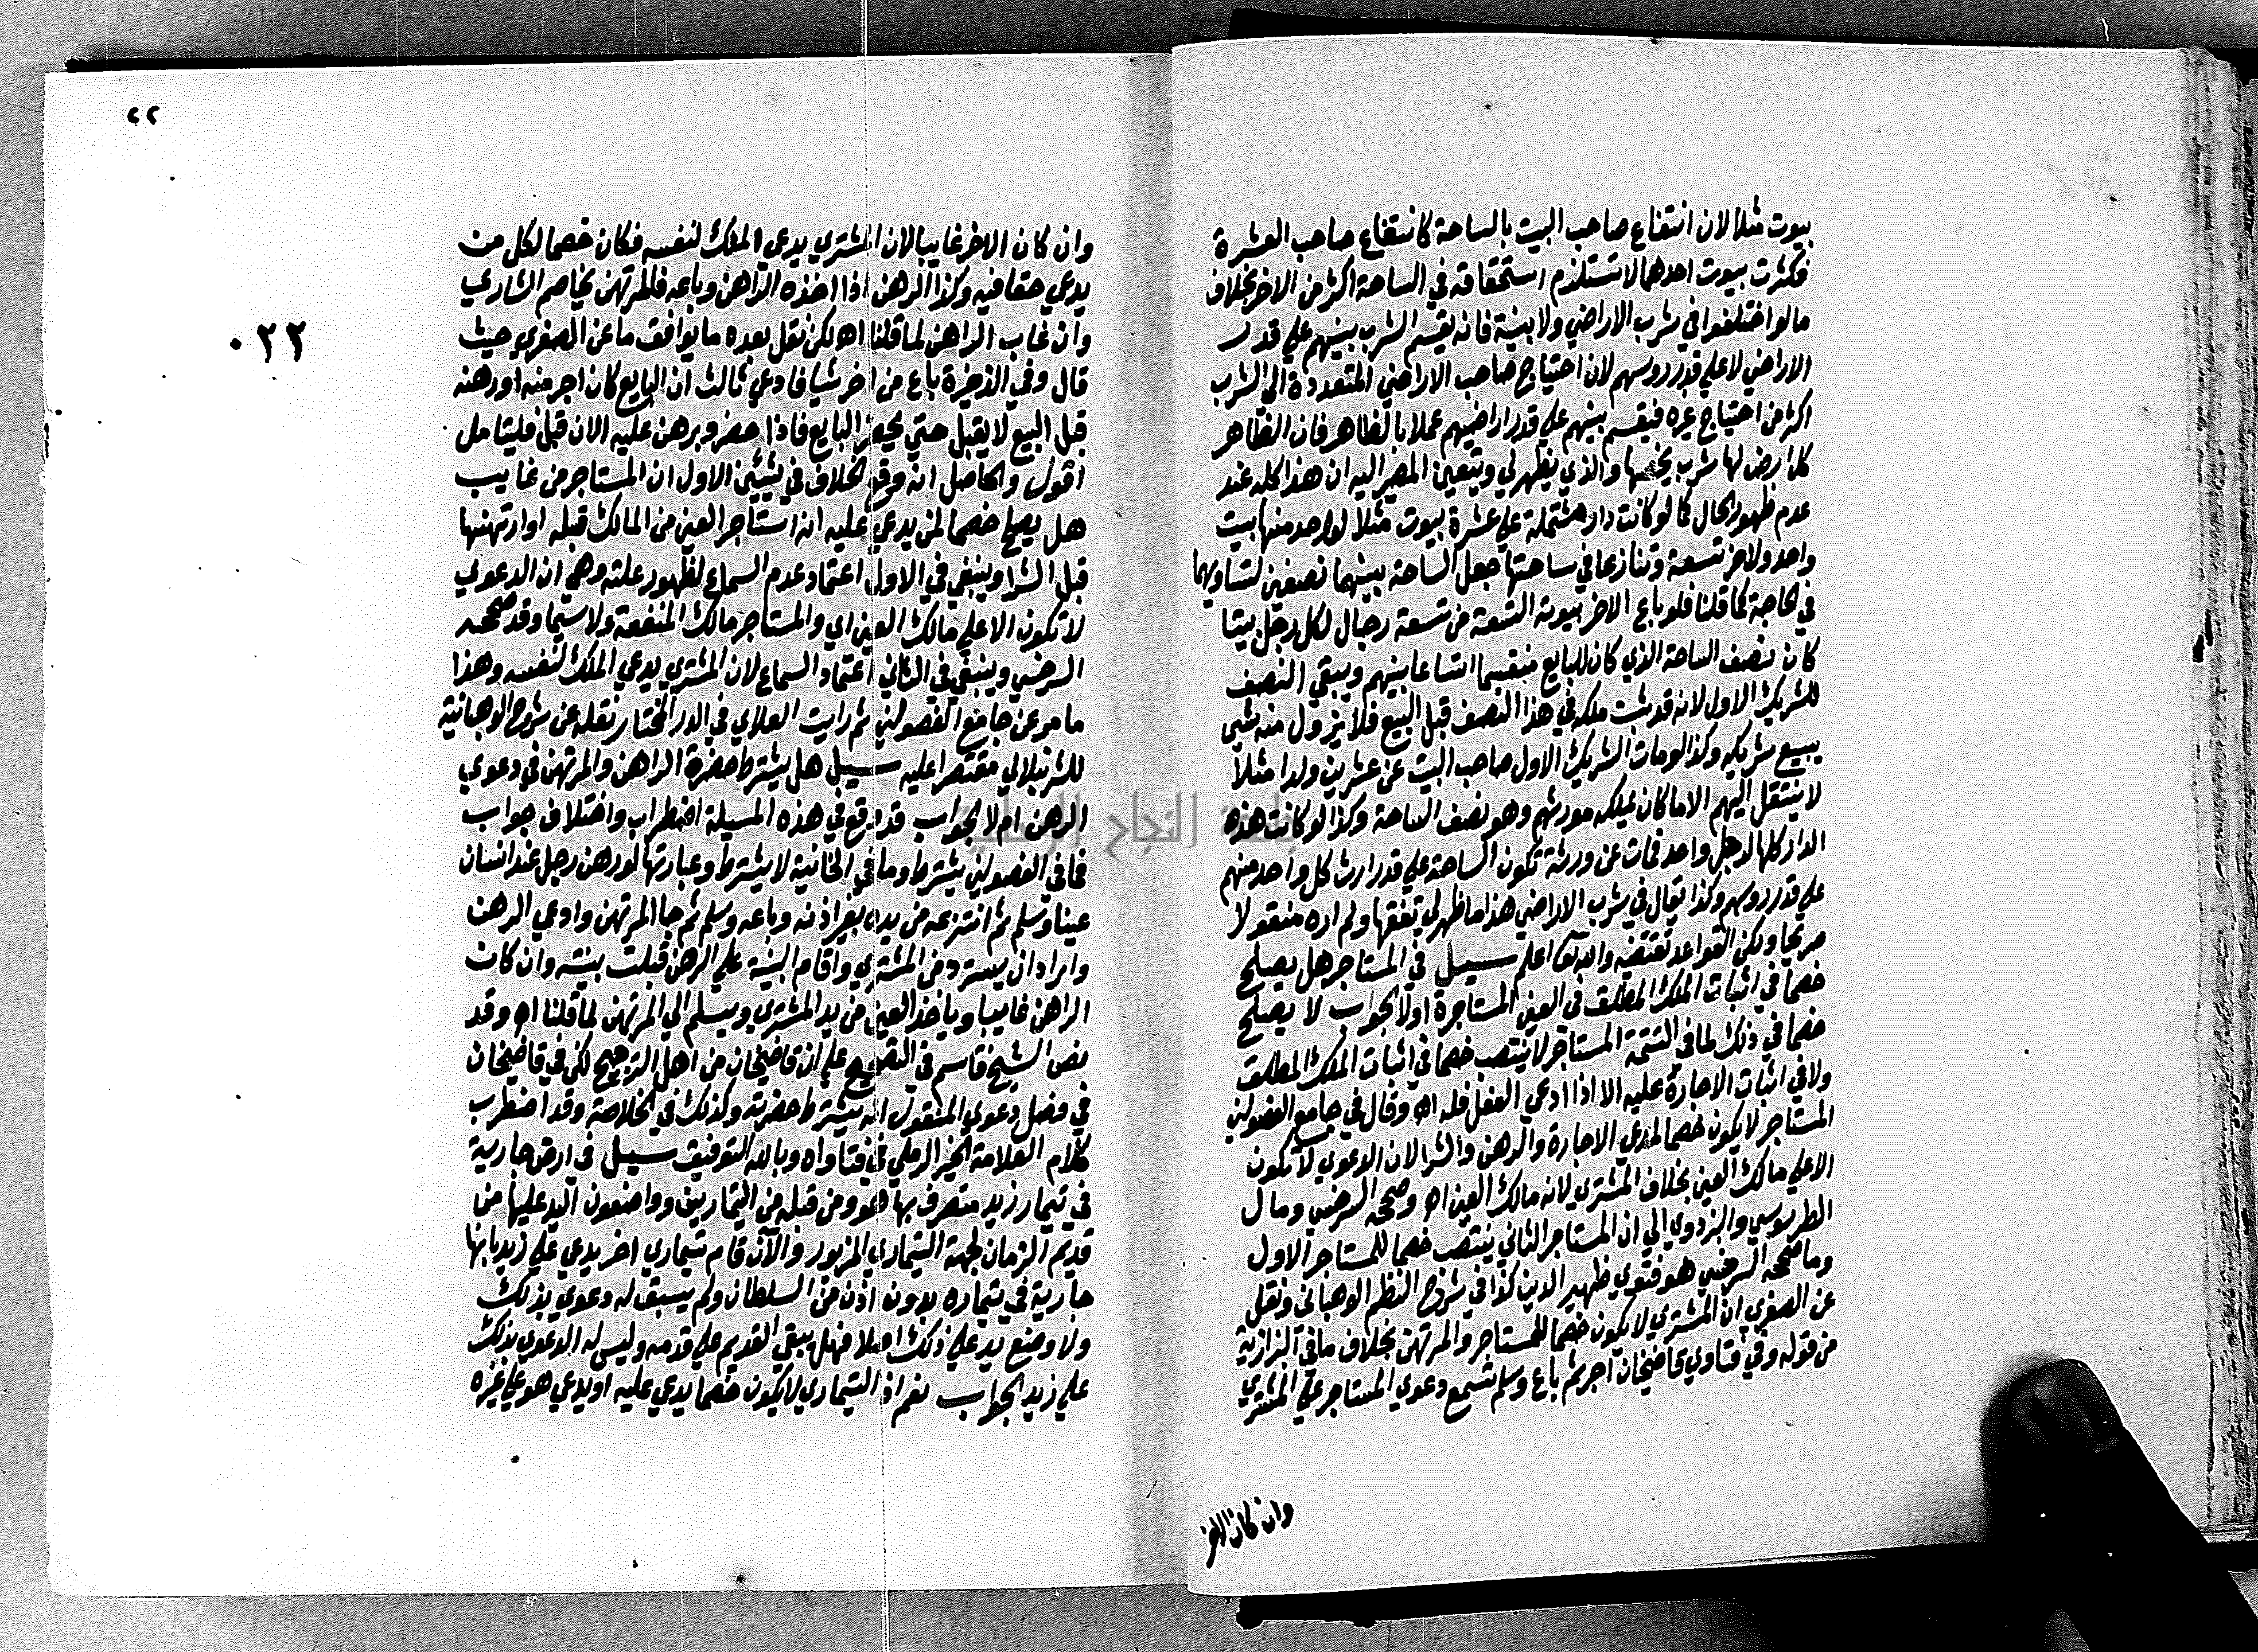 بيوت مثلا لان انتفاع صاحب البيت بالساحة كانتفاع صاحب العشرة
فكثرت بيوت احدهما لا تستلزم استحقاقه في الساحة اكثر من الاخر بخلاف
مالو اختلفوا في شرب الاراضي ولا بينة فانه يقسم الشرب بينهم علي قدر
الاراضي لا علي قدر روسهم لان احتياج صاحب الاراضي المتعددة الي الشرب
اكثر من احتياج غيره فيقسم بينهم علي قدر اراضيهم عملا بالظاهر فان الظاهر
كل ارض لها شرب يخصها والذي يظهر لي ويتعين المصير اليه ان هذا كله عند
عدم ظهور الحال كما لو كانت دار مشتملة علي عشرة بيوت مثلا لواحد منها بيت
واحد ولاخر تسعة وتنازعا في ساحتها جعل الساحة بينهما نصفين لتساويهما
في الحاجة كما قلنا فلو باع الاخر بيوته التسعة من تسعة رجال لكل رجل بيتا
كان نصف الساحة الذي كان للبايع منقسما اتساعا بينهم ويبقي النصف
للشريك الاول لانه قد ثبت ملكه في هذا النصف قبل البيع فلا يزول منه شي
ببيع شريكه وكذا لو مات الشريك الاول صاحب البيت عن عشرين ولدا مثلا
لا ينتقل اليهم الا ما كان يملكه مورثهم وهو نصف الساحة وكذا لو كانت هذه
الدار كلها لرجل واحد فمات عن ورثة تكون الساحة علي قدر ارث كل واحد منهم
علي قدر روسهم وكذا يقال في شرب الاراضي هذا ما ظهر لي تفقها ولم اره منقولا
صريحا ولكن القواعد تقتضيه والله تعا اعلم سيل في المستاجر هل يصلح
خصما في اثبات الملك المطلق في العين المستاجرة اولا الجواب لا يصلح
خصما في ذلك لما في التتمة المستاجر لا ينتصب خصما في اثبات الملك المطلق
ولا في اثبات الاجارة عليه الا اذا ادعي الفعل فله اه وقال في جامع الفصولين
المستاجر لا يكون خصما لمدعي الاجارة والرهن والشرا لان الدعوي لا تكون
الا علي مالك العين بخلاف المشتري لانه مالك العين اه وصححه السرخسي ومال
الطرسوسي والبزدوي الي ان المستاجر الثاني ينتصب خصما للمستاجر الاول
وما صححه السرخسي هو فتوي ظهير الدين كذا في شرح النظم الوهباني ونقل
عن الصغري ان المشتري لا يكون خصما للمستاجر والمرتهن بخلاف ما في البزازية
من قوله وفي فتاوي قاضيخان اجر ثم باع وسلم تسمع دعوي المستاجر علي المشتري
وان كان الاخر
٢٢
٠٢٢
وان كان الاخر غايبا لان المشتري يدعي الملك لنفسه فكان خصما لكل من
يدعي حقا فيه وكذا الرهن اذا اخذه الراهن وباعه فالمرتهن يخاصم الشاري
وان غاب الراهن لما قلنا اه لكن نقل بعده ما يوافق ما عن الصغري حيث
قال وفي الذخيرة باع من اخر شيا فادعي ثالث ان البايع كان اجر منه او رهنه
قبل البيع لا يقبل حتي يحضر البايع فاذا حضر وبرهن عليه الان قبل فليتامل
اقول والحاصل انه وقع الخلاف في شيئين الاول ان المستاجر من غايب
هل يصلح خصما لمن يدعي عليه انه استاجر العين من المالك قبله او ارتهنها
قبل الشرا وينبغي في الاول اعتماد عدم السماع لظهور علته وهي ان الدعوي
لا تكون الا علي مالك العين اي والمستاجر مالك المنفعة ولا سيما وقد صححه
السرخسي وينبغي في الثاني اعتماد السماع لان المشتري يدعي الملك لنفسه وهذا
ما مر عن جامع الفصولين ثم رايت العلاي في الدر المختار نقله عن شرح الوهبانية
للشرنبلالي مقتصرا عليه سيل هل يشترط حضرة الراهن والمرتهن في دعوي
الرهن ام لا الجواب قد وقع في هذه المسيلة اضطراب واختلاف جواب
فما في الفصولين يشترط وما في الخانية لا يشترط وعبارتها لو رهن رجل عند انسان
عينا وسلم ثم انتزعه من يده بغير اذنه وباعه وسلم ثم جا المرتهن وادعي الرهن
واراد ان يسترد من المشتري واقام البينة علي الرهن قبلت بينته وان كان
الراهن غايبا وياخذ العين من يد المشتري ويسلم الي المرتهن لما قلنا اه وقد
نص الشيخ قاسم في التصحيح علي ان قاضيخان من اهل الترجيح لكن في قاضيخان
في فصل دعوي المنقول انه يشترط حضرته وكذلك في الخلاصة وقد اضطرب
كلام العلامة الخير الرملي في فتاواه وبالله التوفيق سيل في ارض جارية
في تيمار زيد متصرف بها هو ومن قبله من التيماريين وواضعون اليد عليها من
قديم الزمان لجهة التيماري المزبور والآن قام تيماري اخر يدعي علي زيد بانها
جارية في تيماره بدون اذن من السلطان ولم يسبق له دعوي بذلك
ولا وضع يد علي ذلك اصلا فهل يبقي القديم علي قدمه وليس له الدعوي بذلك
علي زيد الجواب نعم اذ التيماري لا يكون خصما يدعي عليه او يدعي هو علي غيره